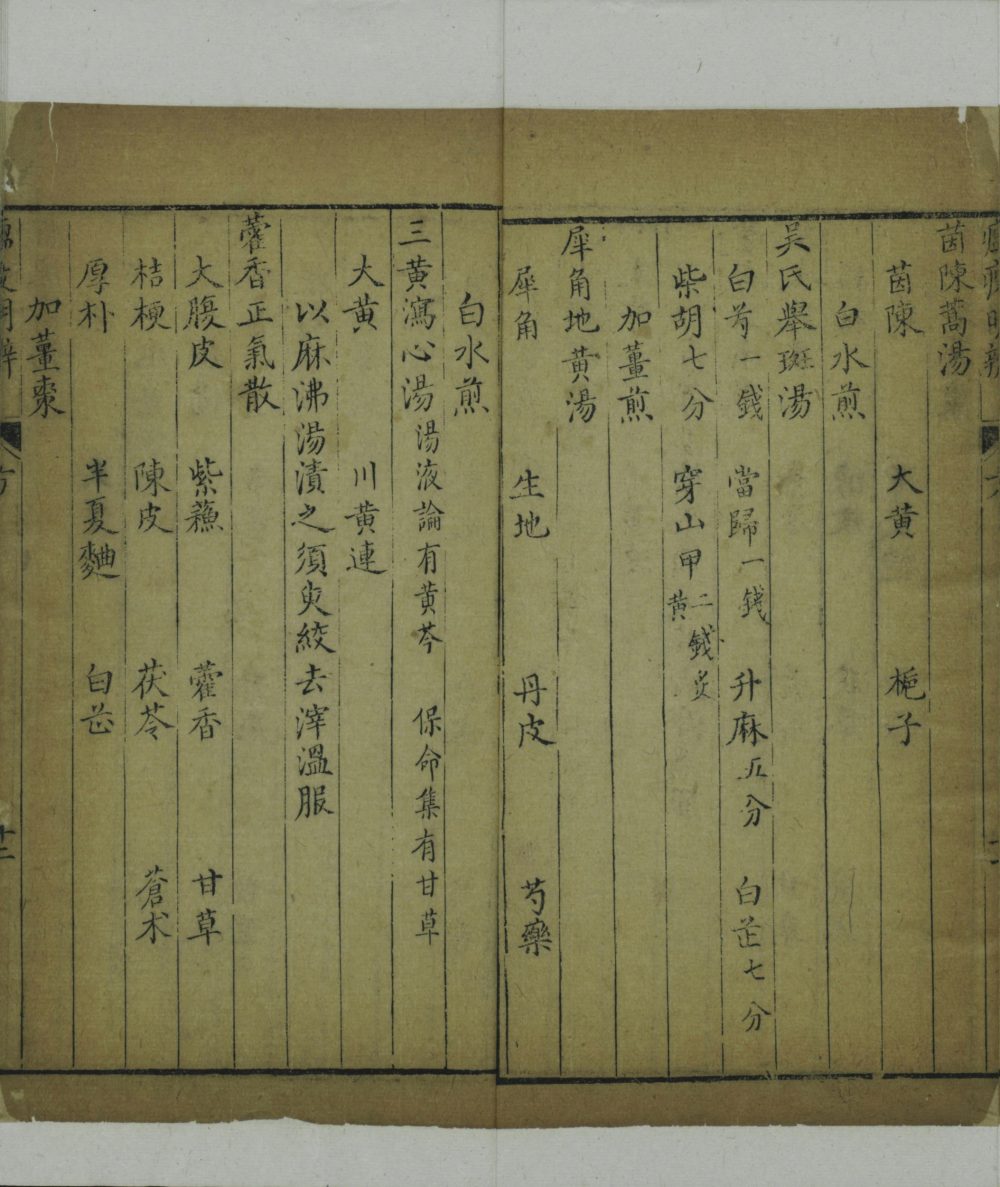 茵陳蒿湯
茵陳 大黄 梔子
白水煎
吴氏舉斑湯
白芍一錢 當歸一錢 升麻五分 白芷七分
柴胡七分 穿山甲二錢炙黄
加薑煎
犀角地黄湯
犀角 生地 丹皮 芍藥
白水煎
三黄瀉心湯湯液論有黄芩 保命集有甘草
大黄 川黄連
以麻沸湯漬之須臾絞去滓温服
藿香正氣散
大腹皮 紫蘓 藿香 甘草
桔梗 陳皮 茯苓 蒼术
厚朴 半夏麯 白芷
加薑棗